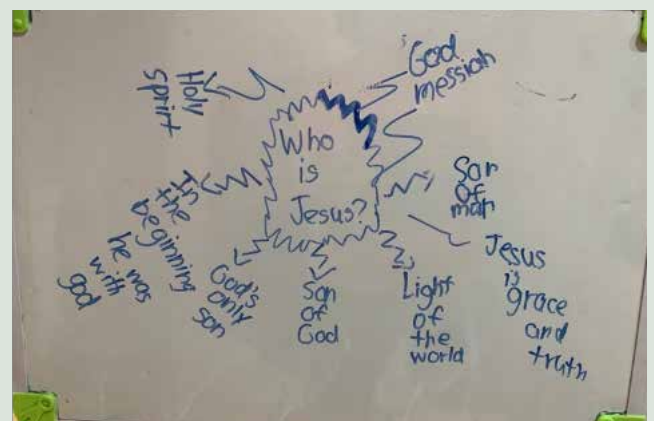 Who
is
Jesus?
God
messiah
Son
of
man
Jesus
is
grace
and
truth
Light
of
the
world
Son
of
God
God's
only
son
In
the
beginning
he was
with
god
Holy
sprirt